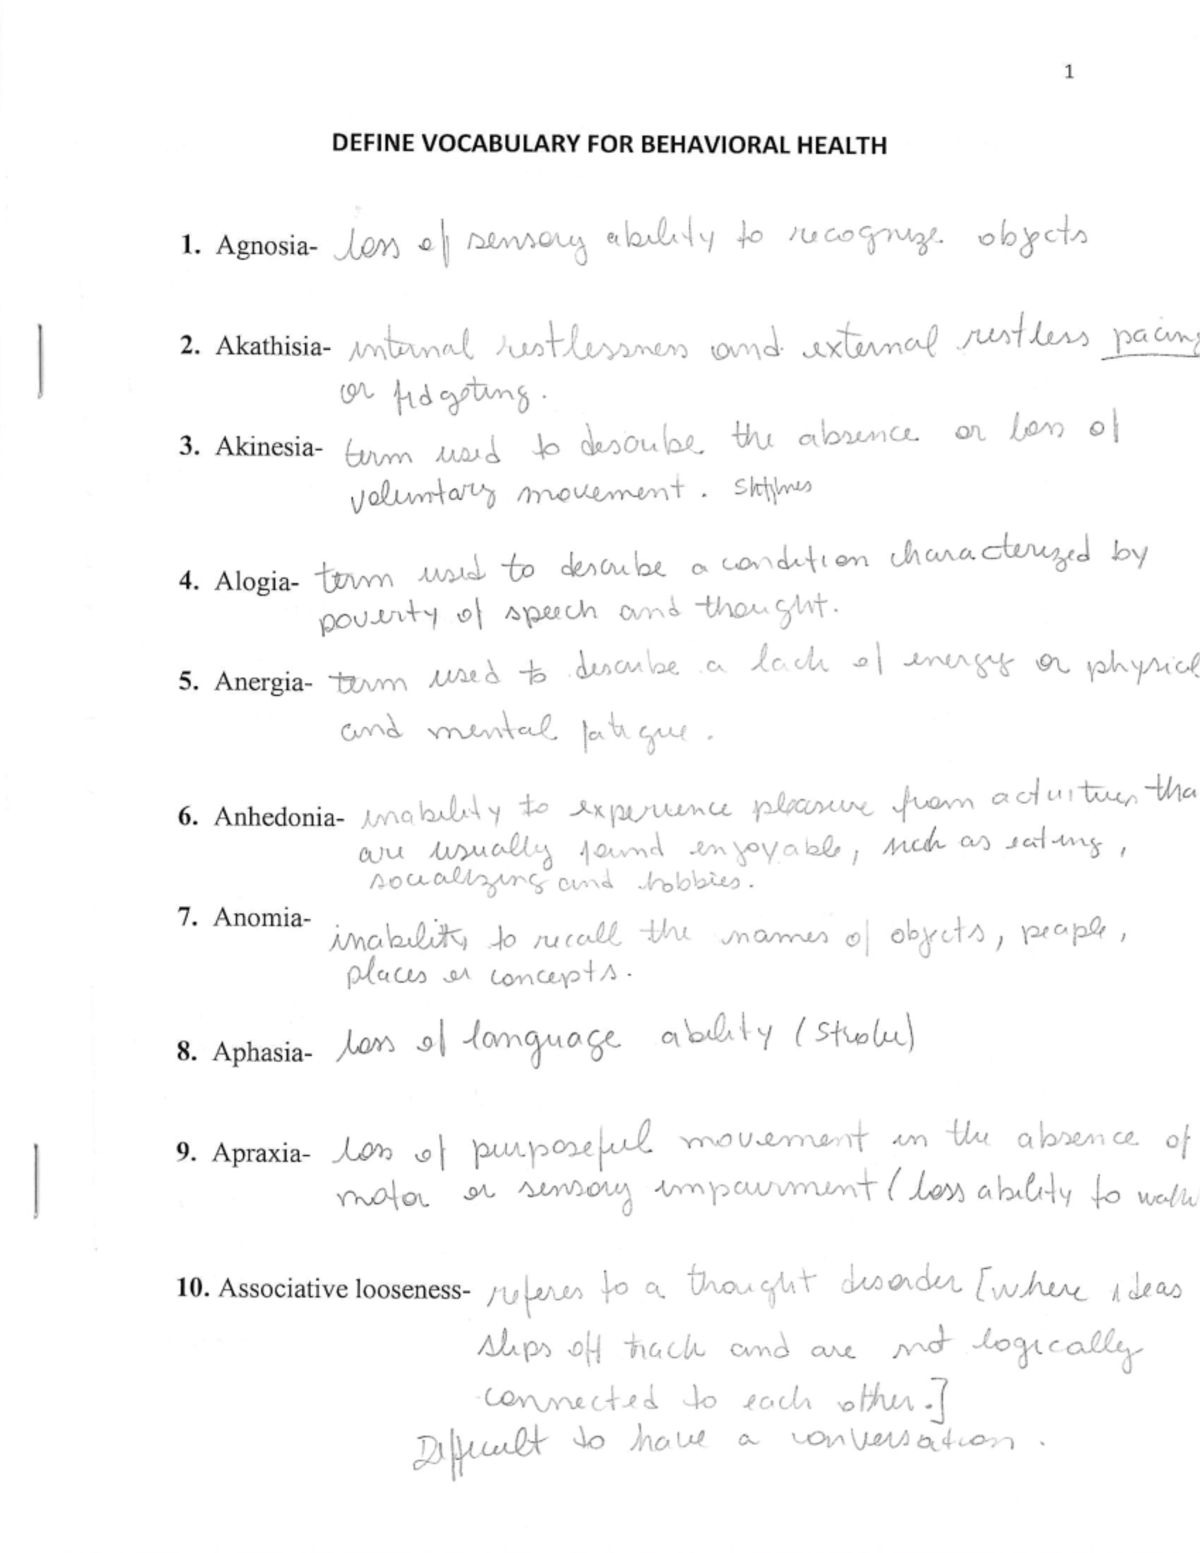 1
DEFINE VOCABULARY FOR BEHAVIORAL HEALTH
1. Agnosia- loss of sensory ability to recognize objects
2. Akathisia- internal restlessness and external restless pacing
or fidgeting.
3. Akinesia- term used to describe the absence or loss of
voluntary movement.
4. Alogia- term used to describe a condition characterized by
poverty of speech and thought.
5. Anergia- term used to describe a lack of energy or physical
and mental fatigue.
6. Anhedonia- inability to experience pleasure from activities tha
are usually found enjoyable, such as eating,
socializing and hobbies.
7. Anomia- inability to recall the names of objects, people,
places or concepts.
8. Aphasia- loss of language ability (stroke)
9. Apraxia- loss of purposeful movement in the absence of
motor or sensory impairment (loss ability to walk
10. Associative looseness- referes to a thought disorder [where ideas
slips off track and are not logically
connected to each other.]
Difficult to have a conversation.